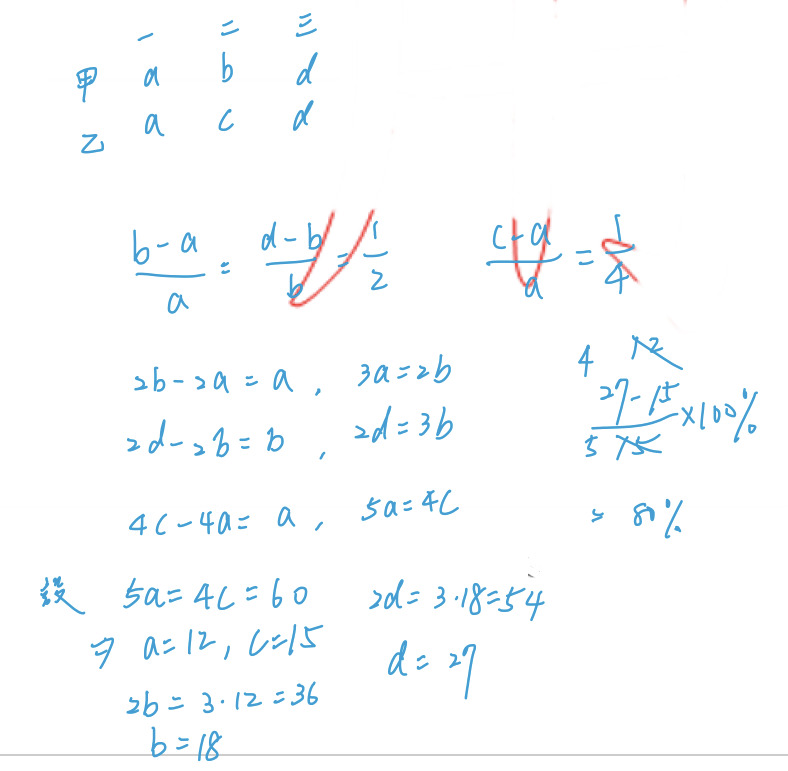 一 二 三
甲 a b d
乙 a c d
(b-a)/a = (d-b)/b = 1/2
(c-a)/a = 1/4
2b-2a=a, 3a=2b
2d-2b=b, 2d=3b
4c-4a=a, 5a=4c
4 12
(27-15)/15 ×100%
5
= 80%
設 5a=4c=60
⇒ a=12, c=15
2b=3·12=36
b=18
2d=3·18=54
d=27